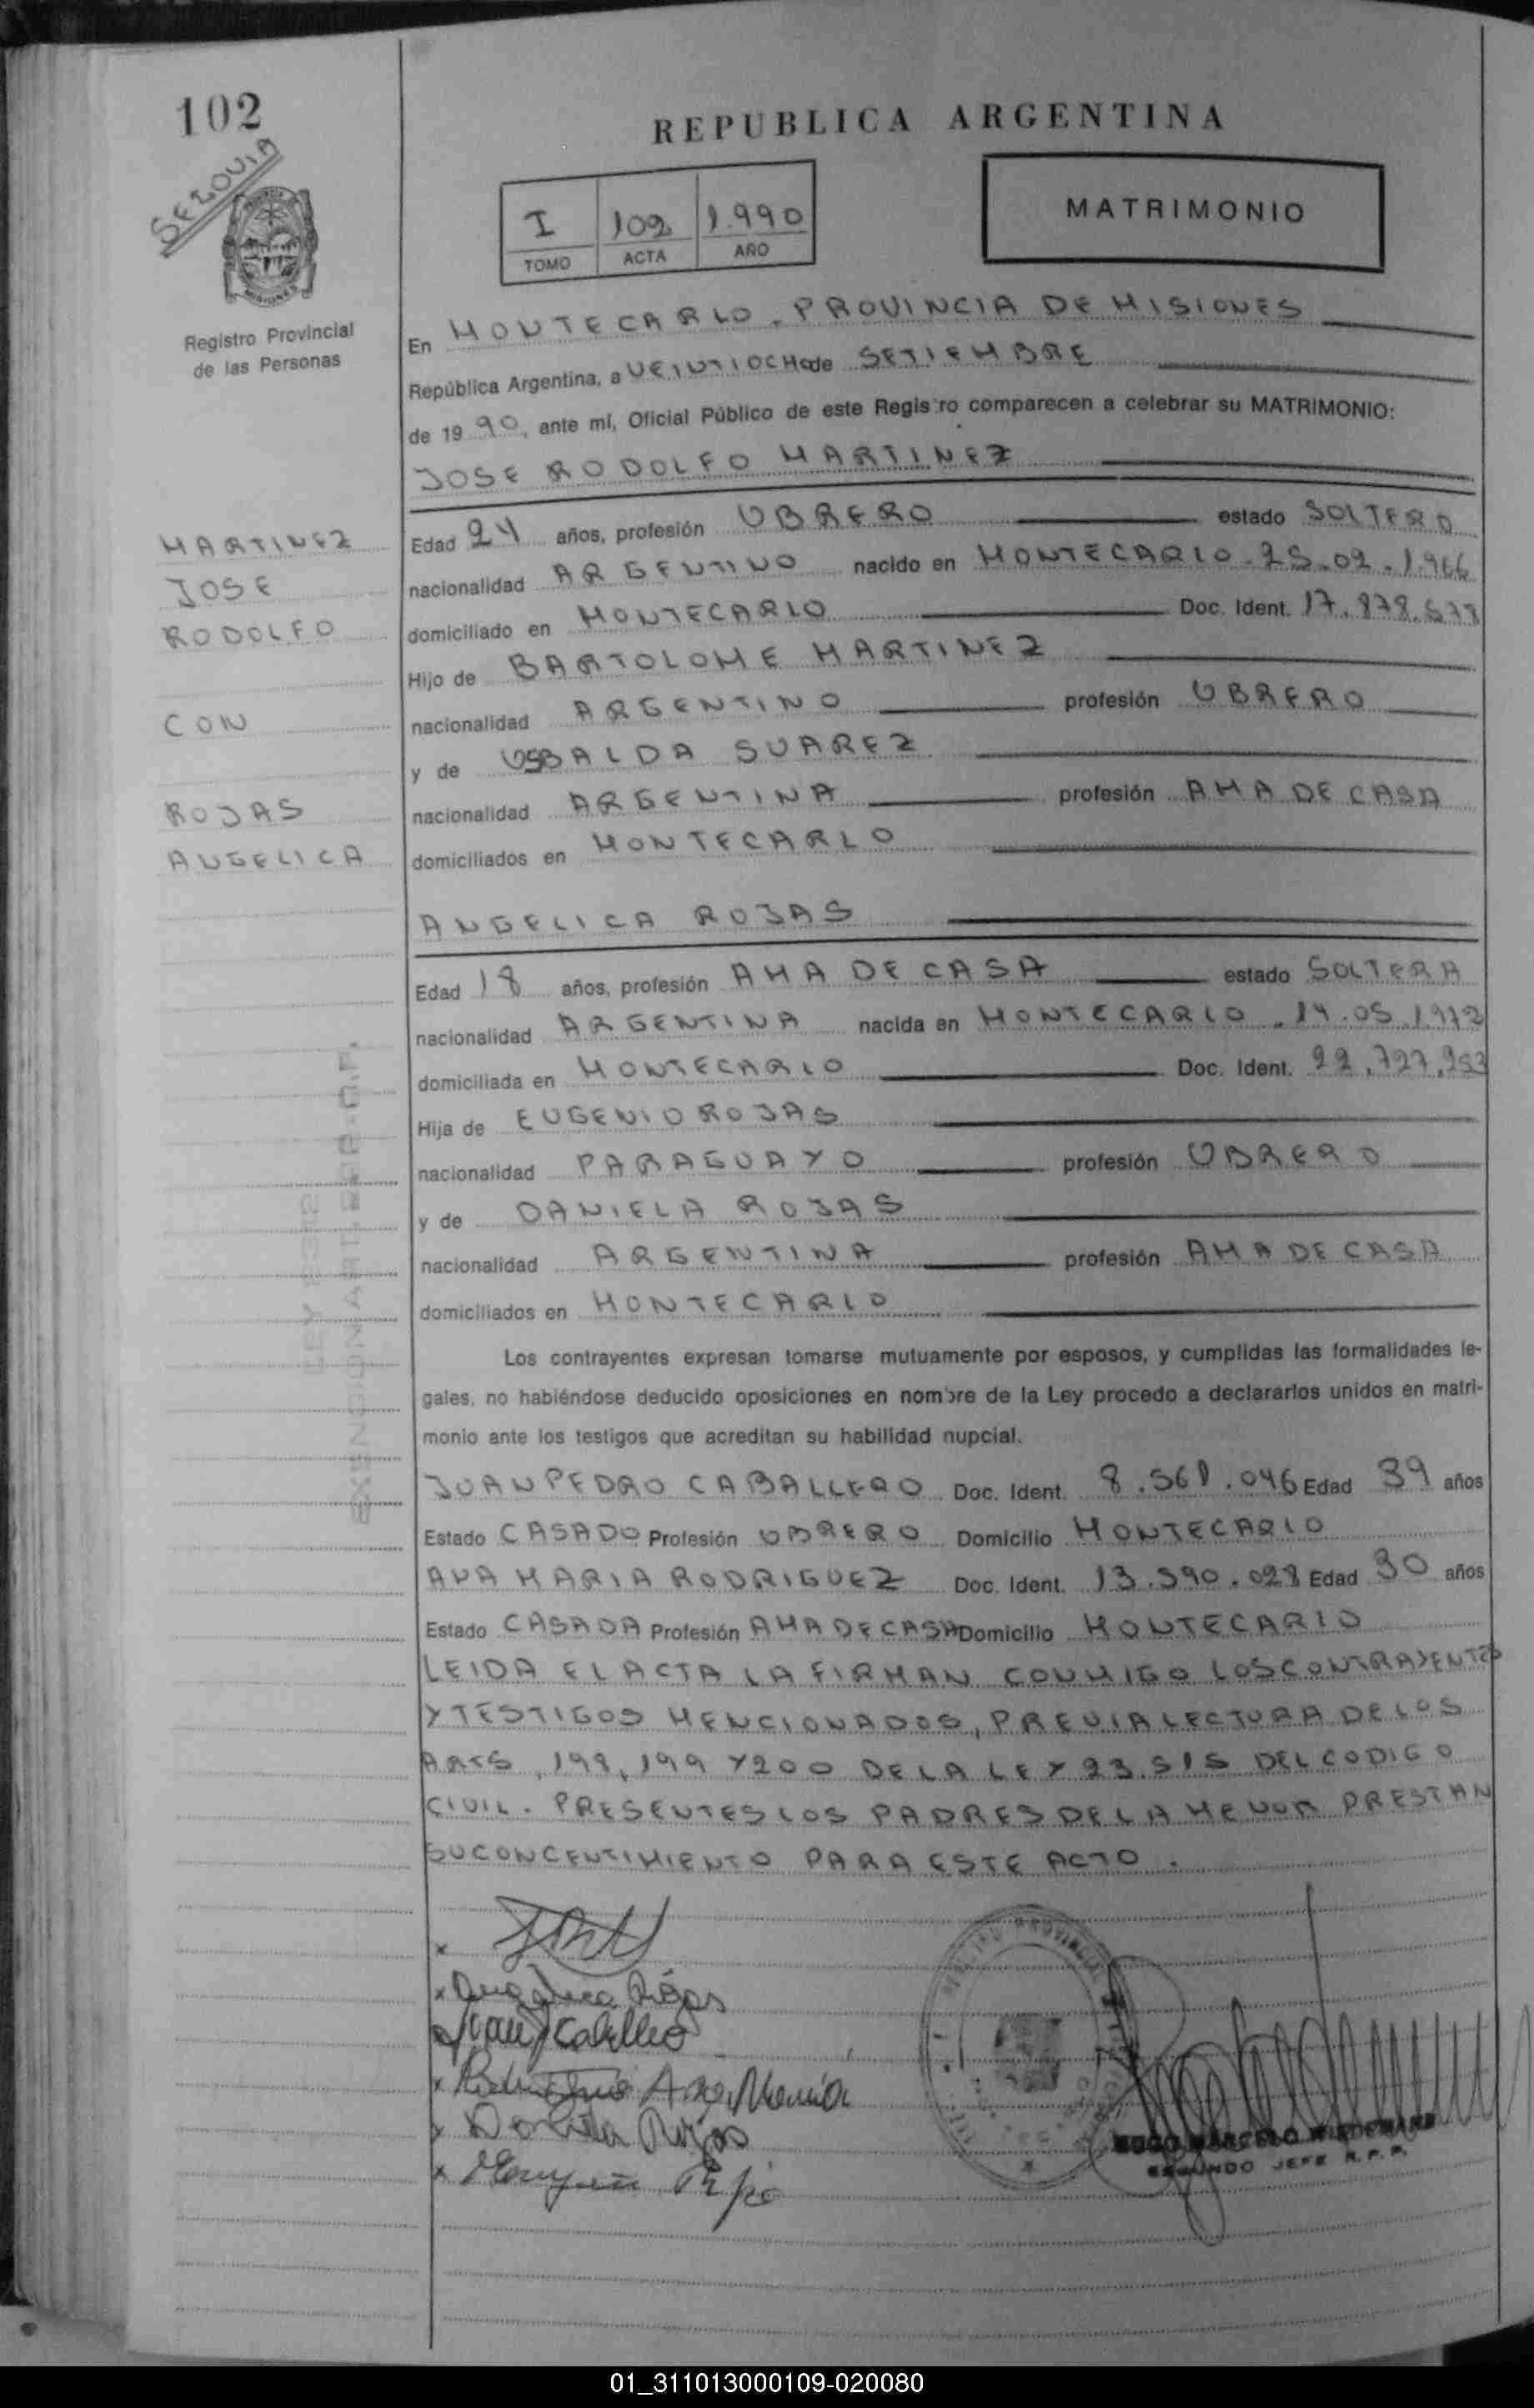 102
SEGOVIA
REPUBLICA ARGENTINA
I 102 1.990
TOMO ACTA AÑO
MATRIMONIO
Registro Provincial
de las Personas
En MONTECARLO, PROVINCIA DE MISIONES
República Argentina, a VEINTIOCHO de SETIEMBRE
de 1990, ante mí, Oficial Público de este Registro comparecen a celebrar su MATRIMONIO:
JOSE RODOLFO MARTINEZ
MARTINEZ
JOSE
RODOLFO
CON
ROJAS
ANGELICA
Edad 24 años, profesión OBRERO estado SOLTERO
nacionalidad ARGENTINO nacido en MONTECARLO - 25.02.1.966
domiciliado en MONTECARLO Doc. Ident. 17.878.578
Hijo de BARTOLOME MARTINEZ
nacionalidad ARGENTINO profesión OBRERO
y de BALDA SUAREZ
nacionalidad ARGENTINA profesión AMA DE CASA
domiciliados en MONTECARLO
ANGELICA ROJAS
Edad 18 años, profesión AMA DE CASA estado SOLTERA
nacionalidad ARGENTINA nacida en MONTECARLO . 14.05.1972
domiciliada en MONTECARLO Doc. Ident. 22.727.253
Hija de EUGENIO ROJAS
nacionalidad PARAGUAYO profesión OBRERO
y de DANIELA ROJAS
nacionalidad ARGENTINA profesión AMA DE CASA
domiciliados en MONTECARLO
Los contrayentes expresan tomarse mutuamente por esposos, y cumplidas las formalidades le-
gales, no habiéndose deducido oposiciones en nombre de la Ley procedo a declararlos unidos en matri-
monio ante los testigos que acreditan su habilidad nupcial.
JUAN PEDRO CABALLERO Doc. Ident. 8.561.046 Edad 39 años
Estado CASADO Profesión OBRERO Domicilio MONTECARLO
ANA MARIA RODRIGUEZ Doc. Ident. 13.390.028 Edad 30 años
Estado CASADA Profesión AMA DE CASA Domicilio MONTECARLO
LEIDA EL ACTA LA FIRMAN CONMIGO LOS CONTRAYENTES
Y TESTIGOS MENCIONADOS, PREVIA LECTURA DE LOS
ARTS, 198, 199 Y 200 DE LA LEY 23.515 DEL CODIGO
CIVIL. PRESENTES LOS PADRES DE LA MENOR PRESTAN
SU CONCENTIMIENTO PARA ESTE ACTO.
Angelica Rojas
Juan P Caballero
Rodriguez Ana Maria
Rojas
HUGO MARCELO WIDEMANN
SEGUNDO JEFE R.P.P.
01_311013000109-020080